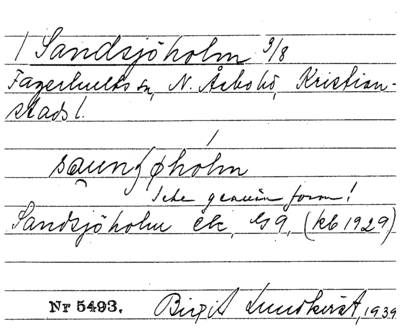 / Sandsjöholm 9/8
Fagerhults sn, N. Åsbo hd, Kristian-
stads l.
Icke genuin form!
Sandsjöholm ek, G9, (kb 1929)
Nr 5493. Birgit Lundkvist, 1939